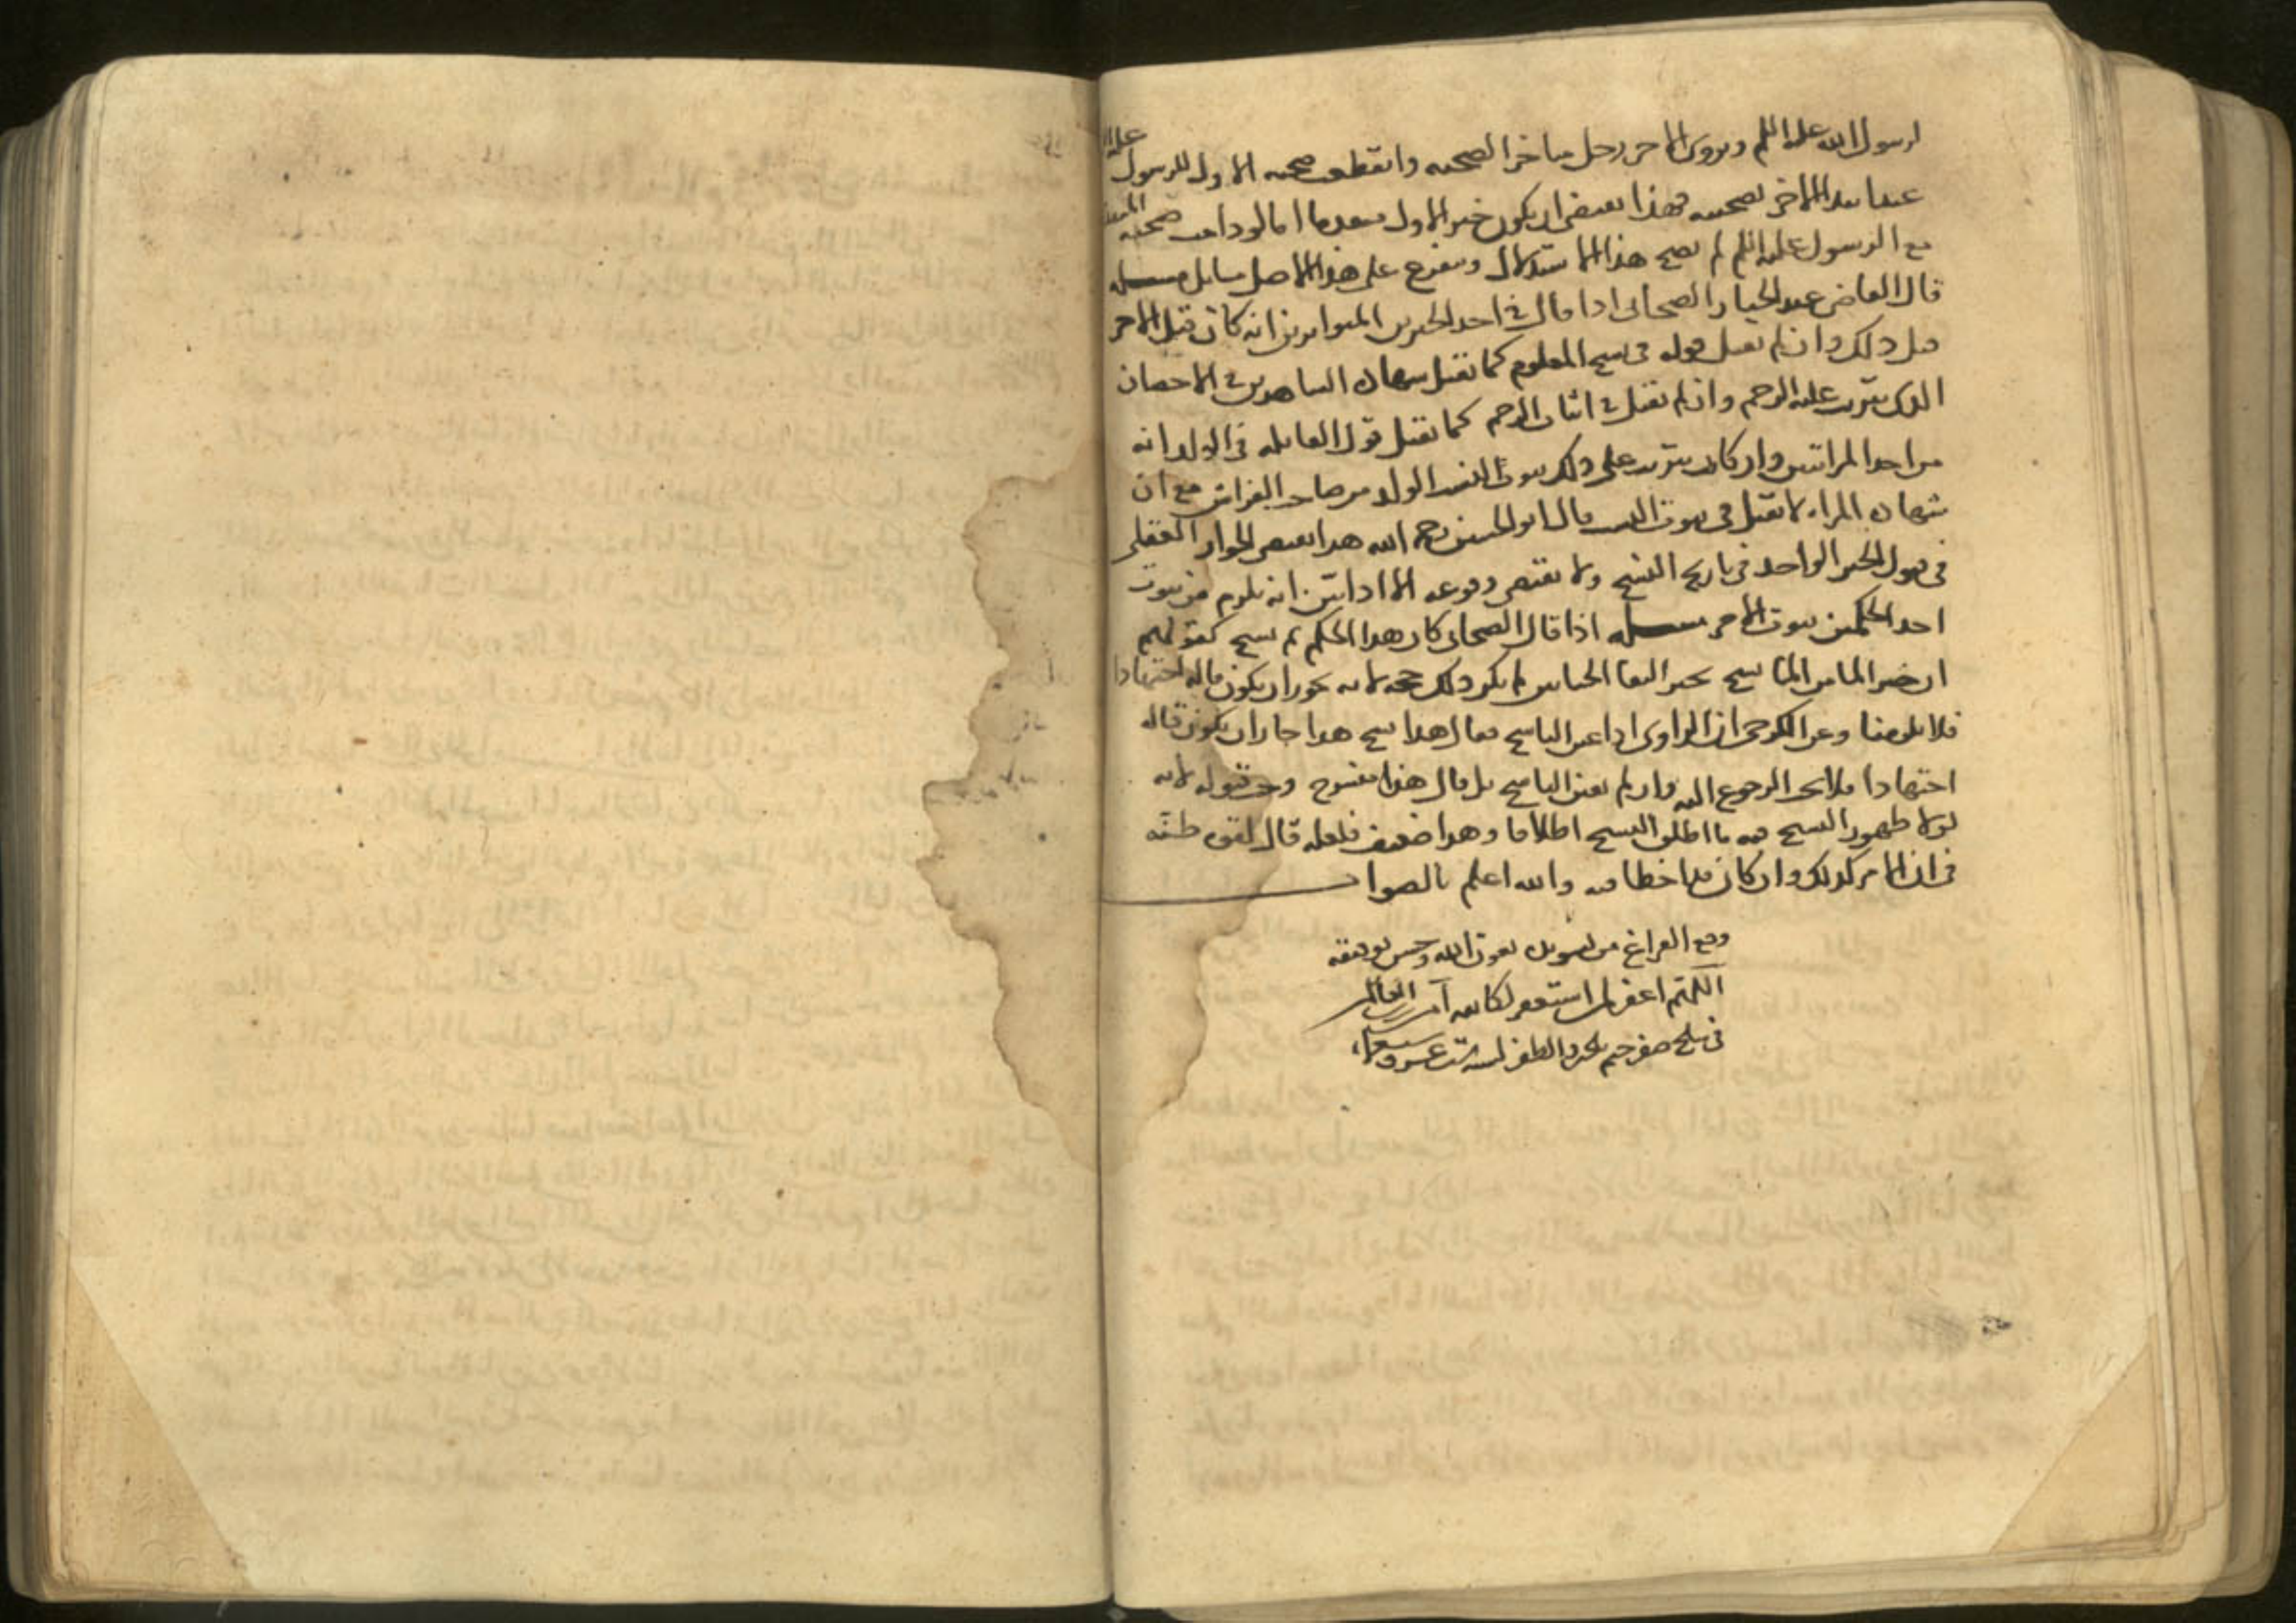 لرسول الله عليه السلم ويروى الاخر رجل متاخر الصحبه وانقطعت صحبه الاول للرسول عليه
عند ابتدا الاخر بصحبته فهذا يقتضى ان يكون خبر الاول متقدما اما لو دامت صحبته
مع الرسول عليه السلم لم يصح هذا الاستدلال ويتفرع على هذا الاصل مسايل مسله
قال القاضى عبد الجبار الصحابى اذا قال فى احد الخبرين المتواترين انه كان قبل الاخر
قبل ذلك وان لم يقبل قوله فى نسخ المعلوم كما تقبل شهاده الشاهدين فى الاحصان
الذى يترتب عليه الرجم وان لم تقبل فى اثبات الرجم كما تقبل قول القابله فى الولد انه
من احد المراتين وان كان يترتب على ذلك ثبوت النسب الولد من صاحب الفراش مع ان
شهاده المراه لا تقبل فى ثبوت النسب قال ابو الحسين رحمه الله هذا يقتضى الجواز العقلى
فى قبول الخبر الواحد فى تاريخ النسخ ولا يقتضى وقوعه الا اذا تبين انه يلزم من ثبوت
احد الحكمين ثبوت الاخر مسله اذا قال الصحابى كان هذا الحكم ثم نسخ كقولهم
ان خبر الما من الما نسخ بخبر التقا الختانين لم يكن ذلك حجه لانه يجوز ان يكون قاله اجتهادا
فلا يلزمنا وعن الكرخى ان الراوى اذا عين الناسخ فقال هذا نسخ هذا جاز ان يكون قاله
اجتهادا فلا يجب الرجوع اليه وان لم يعين الناسخ بل قال هذا منسوخ وجب قبوله لانه
لولا ظهور النسخ فيه ما اطلق النسخ اطلاقا وهذا ضعيف فلعله قال لقوه ظنه
فى ان الامر كذلك وان كان قد اخطا فيه والله اعلم بالصواب
وقع الفراغ من تسويده بعون الله وحسن توفيقه
اللهم اغفر لمن استغفر لكاتبه آمين رب العالمين
فى سلخ صفر ختم بالخير والظفر لسنه ست عشر وسبعمايه